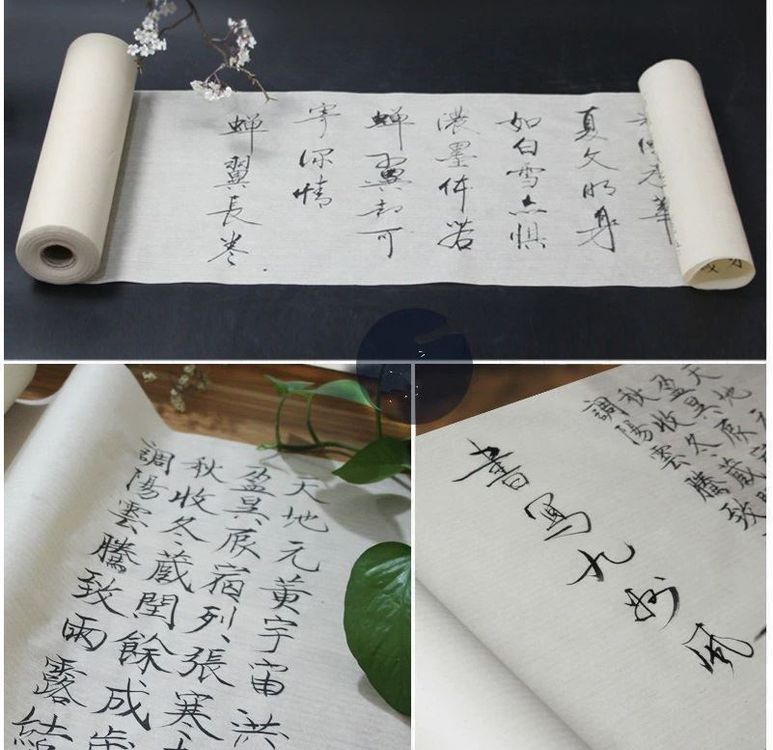 夏文明身
如白雪点惧
濃墨体若
蝉翼却可
寄深情
蝉翼長卷
天地元黃宇宙洪
盈昃辰宿列張寒
秋收冬藏閏餘成歲
調陽雲騰致雨露結
天地元
盈昃辰
秋收冬藏
調陽雲騰致
書写九州风